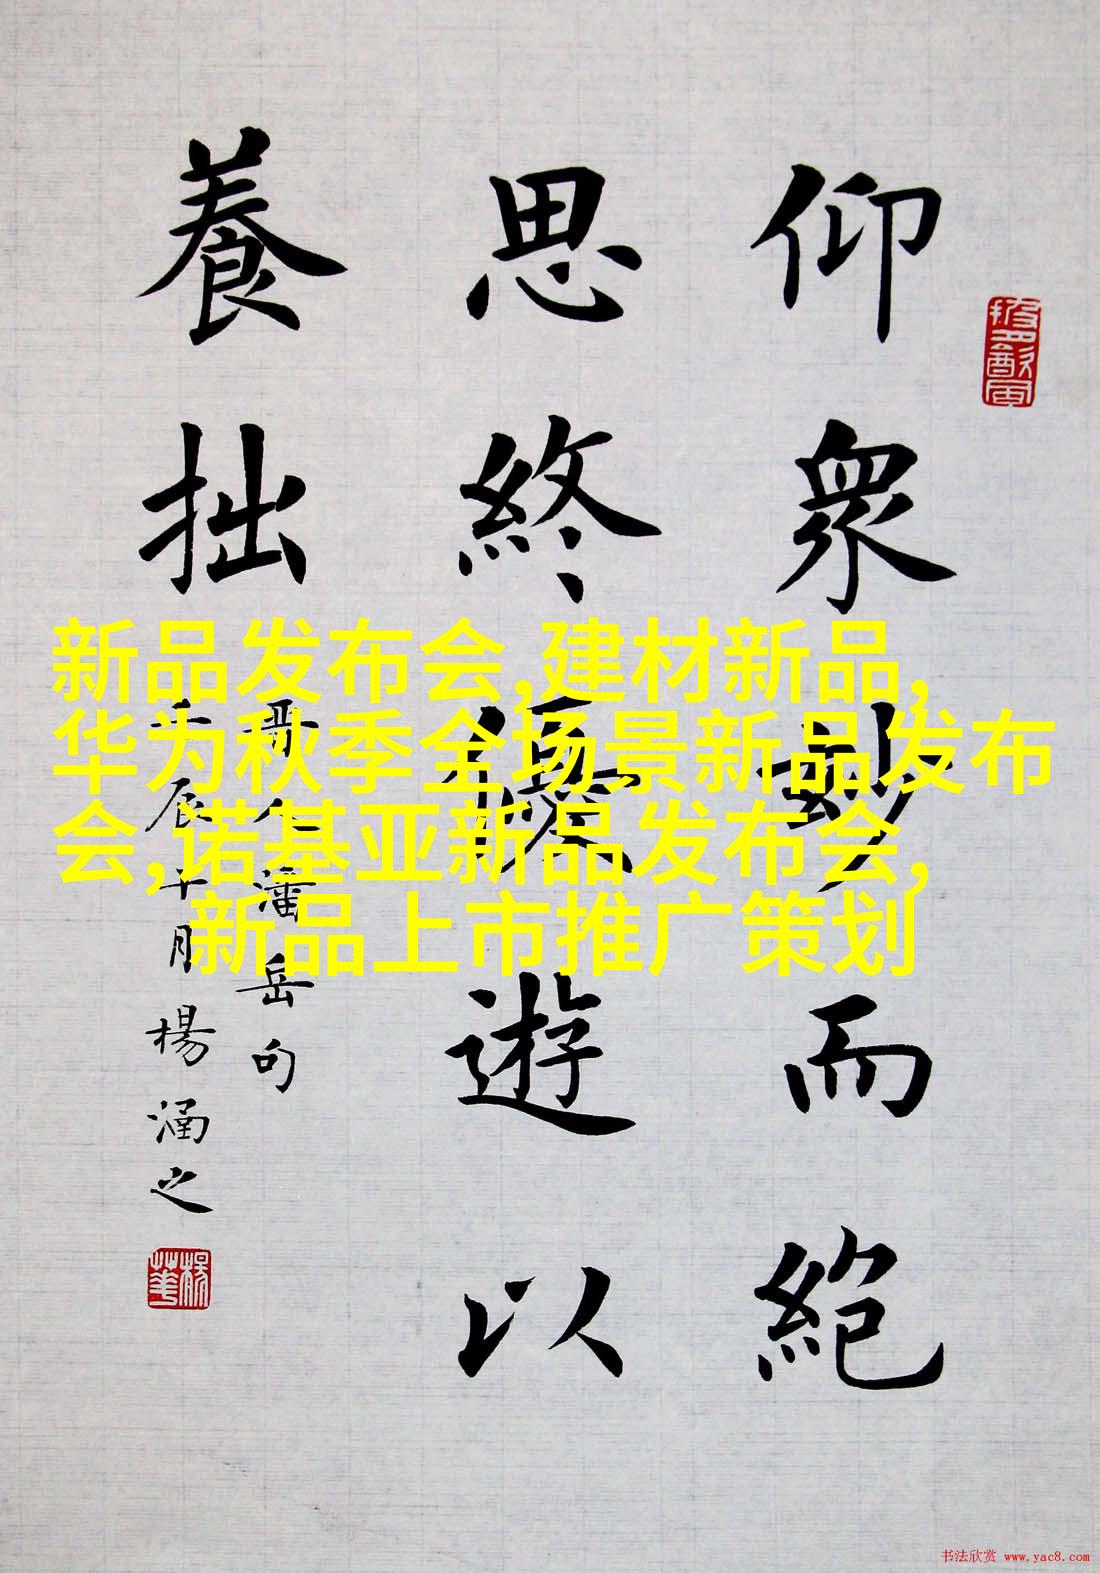 仰眾妙而絕
思終優遊以
養拙
晋人潘岳句
壬辰年月楊涵之
新品发布会,建材新品,
华为秋季全场景新品发布
会,诺基亚新品发布会,
新品上市推广策划
书法欣赏 www.yac8.com